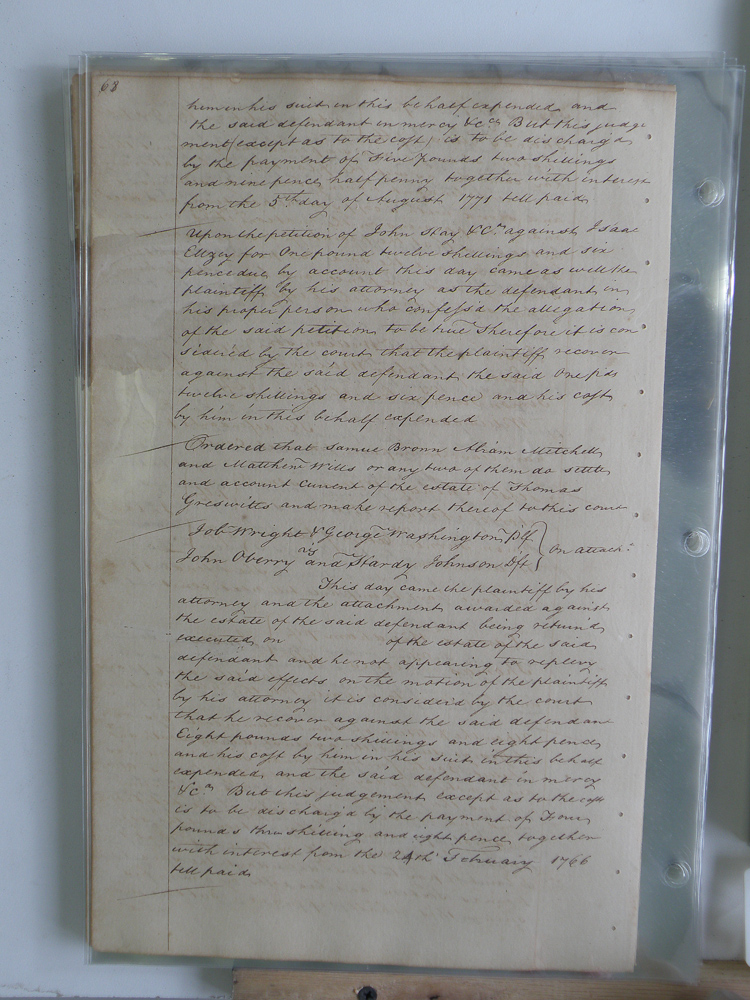 68
him in his suit in this behalf expended and
the said defendant in mercy &c.a But this judge
ment (except as to the cost) is to be discharg'd
by the payment of Five pounds two shillings
and nine pence half penny together with interest
from the 5th day of August 1771 till paid
Upon the petition of John Hay & C.o against Isaac
Elizey for One pound twelve shillings and six
pence due by account this day came as well the
plaintiff by his attorney as the defendant in
his proper person who confess'd the allegation
of the said petition to be true Therefore it is con
sidered by the court that the plaintiff recover
against the said defendant the said One pds
twelve shillings and six pence and his cost
by him in this behalf expended
Ordered that Samuel Brown Abram Mitchell
and Matthew Wills or any two of them do settle
and account current of the estate of Thomas
Greswitts and make report thereof to this court
Job Wright & George Washington Plf
vs
John Oberry and Hardy Johnson Dft } On attach.t
This day came the plaintiff by his
attorney and the attachment awarded against
the estate of the said defendant being return'd
executed on of the estate of the said
defendant and he not appearing to replevy
the said effects on the motion of the plaintiff
by his attorney it is consider'd by the court
that he recover against the said defendant
Eight pounds two shillings and eight pence
and his cost by him in his suit in this behalf
expended and the said defendant in mercy
&c.a But this judgement except as to the cost
is to be discharg'd by the payment of Four
pounds three shilling and eight pence together
with interest from the 24th February 1766
till paid